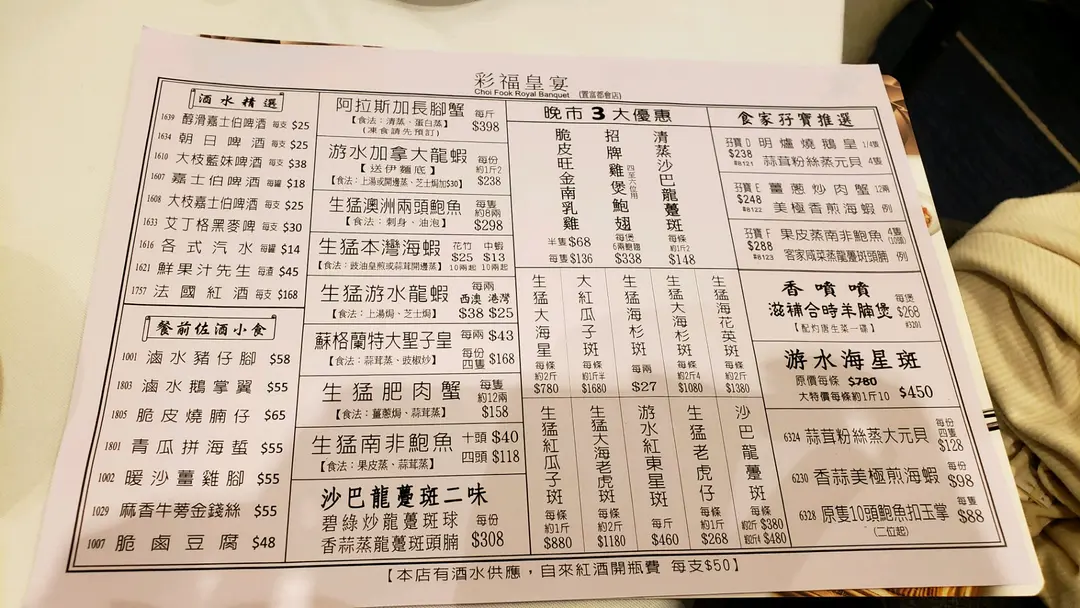 彩福皇宴
Choi Fook Royal Banquet (置富都會店)
酒水精選
1639 醇滑嘉士伯啤酒 每支 $25
1634 朝日啤酒 每支 $25
1610 大枝藍妹啤酒 每支 $38
1607 嘉士伯啤酒 每罐 $18
1608 大枝嘉士伯啤酒 每支 $25
1633 艾丁格黑麥啤 每支 $30
1616 各式汽水 每罐 $14
1621 鮮果汁先生 每渣 $45
1757 法國紅酒 每支 $168
餐前佐酒小食
1001 滷水豬仔腳 $58
1803 滷水鵝掌翼 $55
1805 脆皮燒腩仔 $65
1801 青瓜拼海蜇 $55
1002 暖沙薑雞腳 $55
1029 麻香牛蒡金錢絲 $55
1007 脆鹵豆腐 $48
阿拉斯加長腳蟹 每斤 $398
【食法：清蒸、蛋白蒸】
(凍食請先預訂)
游水加拿大龍蝦 每份 約1斤2 $238
【送伊麵底】
【食法：上湯或開邊蒸、芝士焗加$30】
生猛澳洲兩頭鮑魚 每隻 約8兩 $298
【食法：刺身、油泡】
生猛本灣海蝦 花竹 $25 10兩起 中蝦 $13 10兩起
【食法：豉油皇煎或蒜茸開邊蒸】
生猛游水龍蝦 每兩 西澳 $38 港灣 $25
【食法：上湯焗、芝士焗】
蘇格蘭特大聖子皇 每兩 $43
【食法：蒜茸蒸、豉椒炒】 每份 四隻 $168
生猛肥肉蟹 每隻 約12兩 $158
【食法：薑蔥焗、蒜茸蒸】
生猛南非鮑魚 十頭 $40
【食法：果皮蒸、蒜茸蒸】 四頭 $118
沙巴龍躉斑二味
碧綠炒龍躉斑球 每份
香蒜蒸龍躉斑頭腩 $308
晚市3大優惠
脆皮旺金南乳雞 半隻 $68 每隻 $136
招牌雞煲鮑翅 四至六位用 每煲 6兩鮑翅 $338
清蒸沙巴龍躉斑 每條 約1斤2 $148
生猛大海星斑 每條 約2斤 $780
大紅瓜子斑 每條 約1斤半 $1680
生猛海杉斑 每兩 $27
生猛大海杉斑 每條 約2斤4 $1080
生猛海花英斑 每條 約2斤 $1380
生猛紅瓜子斑 每條 約1斤 $880
生猛大海老虎斑 每條 約2斤 $1180
游水紅東星斑 每斤 $460
生猛老虎仔 每條 約1斤 $268
沙巴龍躉斑 每條 約2斤 $380 約2斤4 $480
食家孖寶推選
孖寶D $238 #8121 明爐燒鵝皇 1/4隻
蒜茸粉絲蒸元貝 4隻
孖寶E $248 #8122 薑蔥炒肉蟹 12兩
美極香煎海蝦 例
孖寶F $288 #8123 果皮蒸南非鮑魚 4隻 (10頭)
客家咸菜蒸龍躉斑頭腩 例
香噴噴
滋補合時羊腩煲 每煲 $268
【配灼唐生菜一碟】 #3201
游水海星斑
原價每條 $780
大特價每條約1斤10 $450
6324 蒜茸粉絲蒸大元貝 每份 四隻 $128
6230 香蒜美極煎海蝦 每份 $98
6328 原隻10頭鮑魚扣玉掌 每隻 $88
(二位起)
【本店有酒水供應，自來紅酒開瓶費 每支$50】